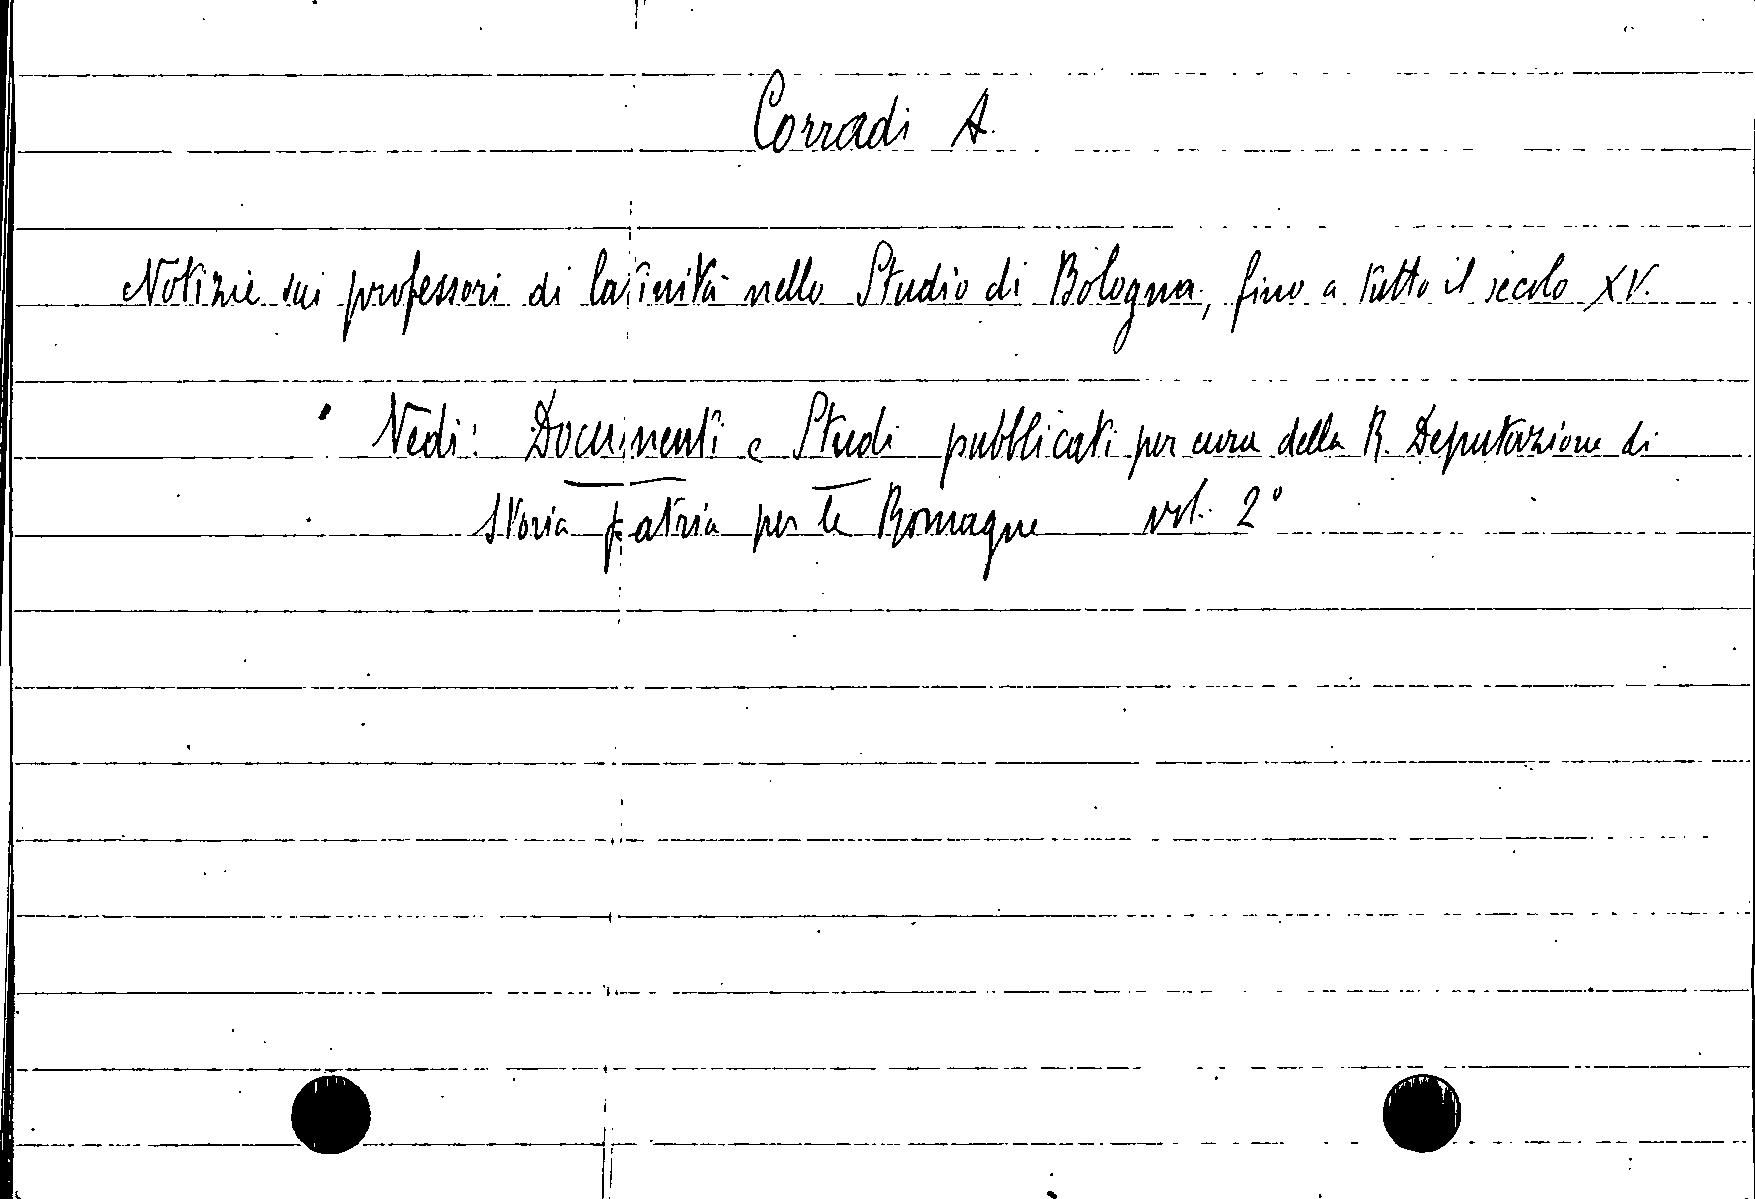 Corradi A.
Notizie sui professori di latinità nello Studio di Bologna, fino a tutto il secolo XV.
Vedi: Documenti e Studi pubblicati per cura della R. Deputazione di
Storia patria per le Romagne vol. 2°